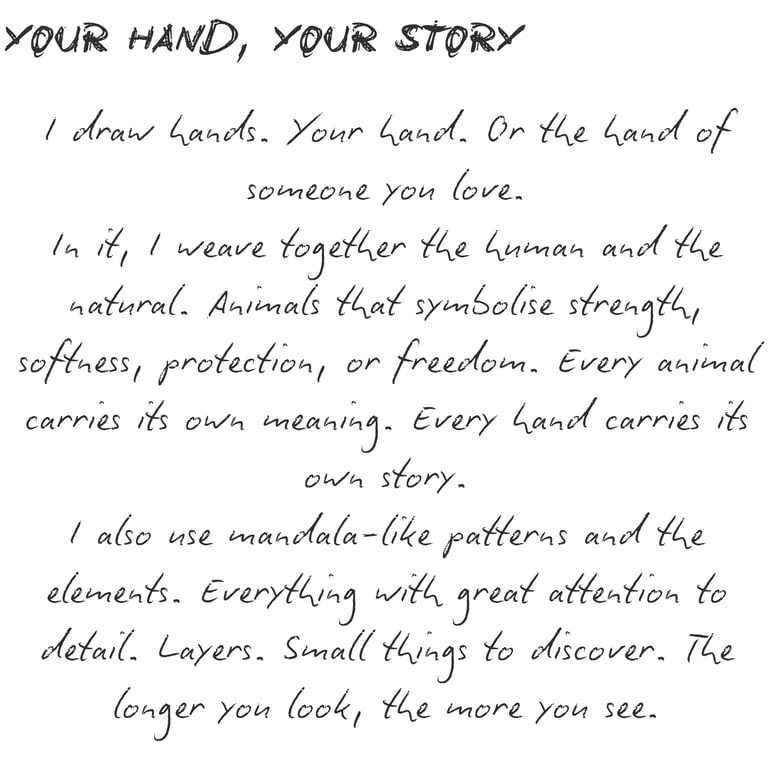 YOUR HAND, YOUR STORY
I draw hands. Your hand. Or the hand of
someone you love.
In it, I weave together the human and the
natural. Animals that symbolise strength,
softness, protection, or freedom. Every animal
carries its own meaning. Every hand carries its
own story.
I also use mandala-like patterns and the
elements. Everything with great attention to
detail. Layers. Small things to discover. The
longer you look, the more you see.